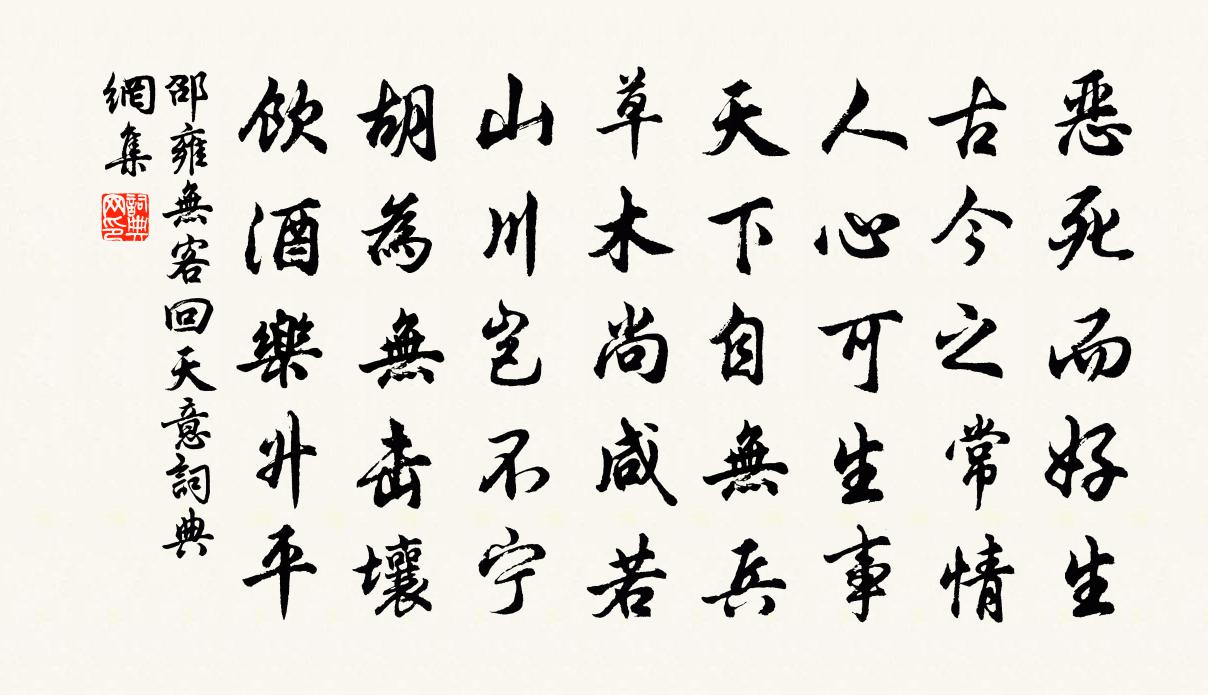 恶死而好生
古今之常情
人心可生事
天下自無兵
草木尚咸若
山川岂不宁
胡為無击壤
飲酒樂升平
邵雍無客回天意詞典
網集
詞典
网印